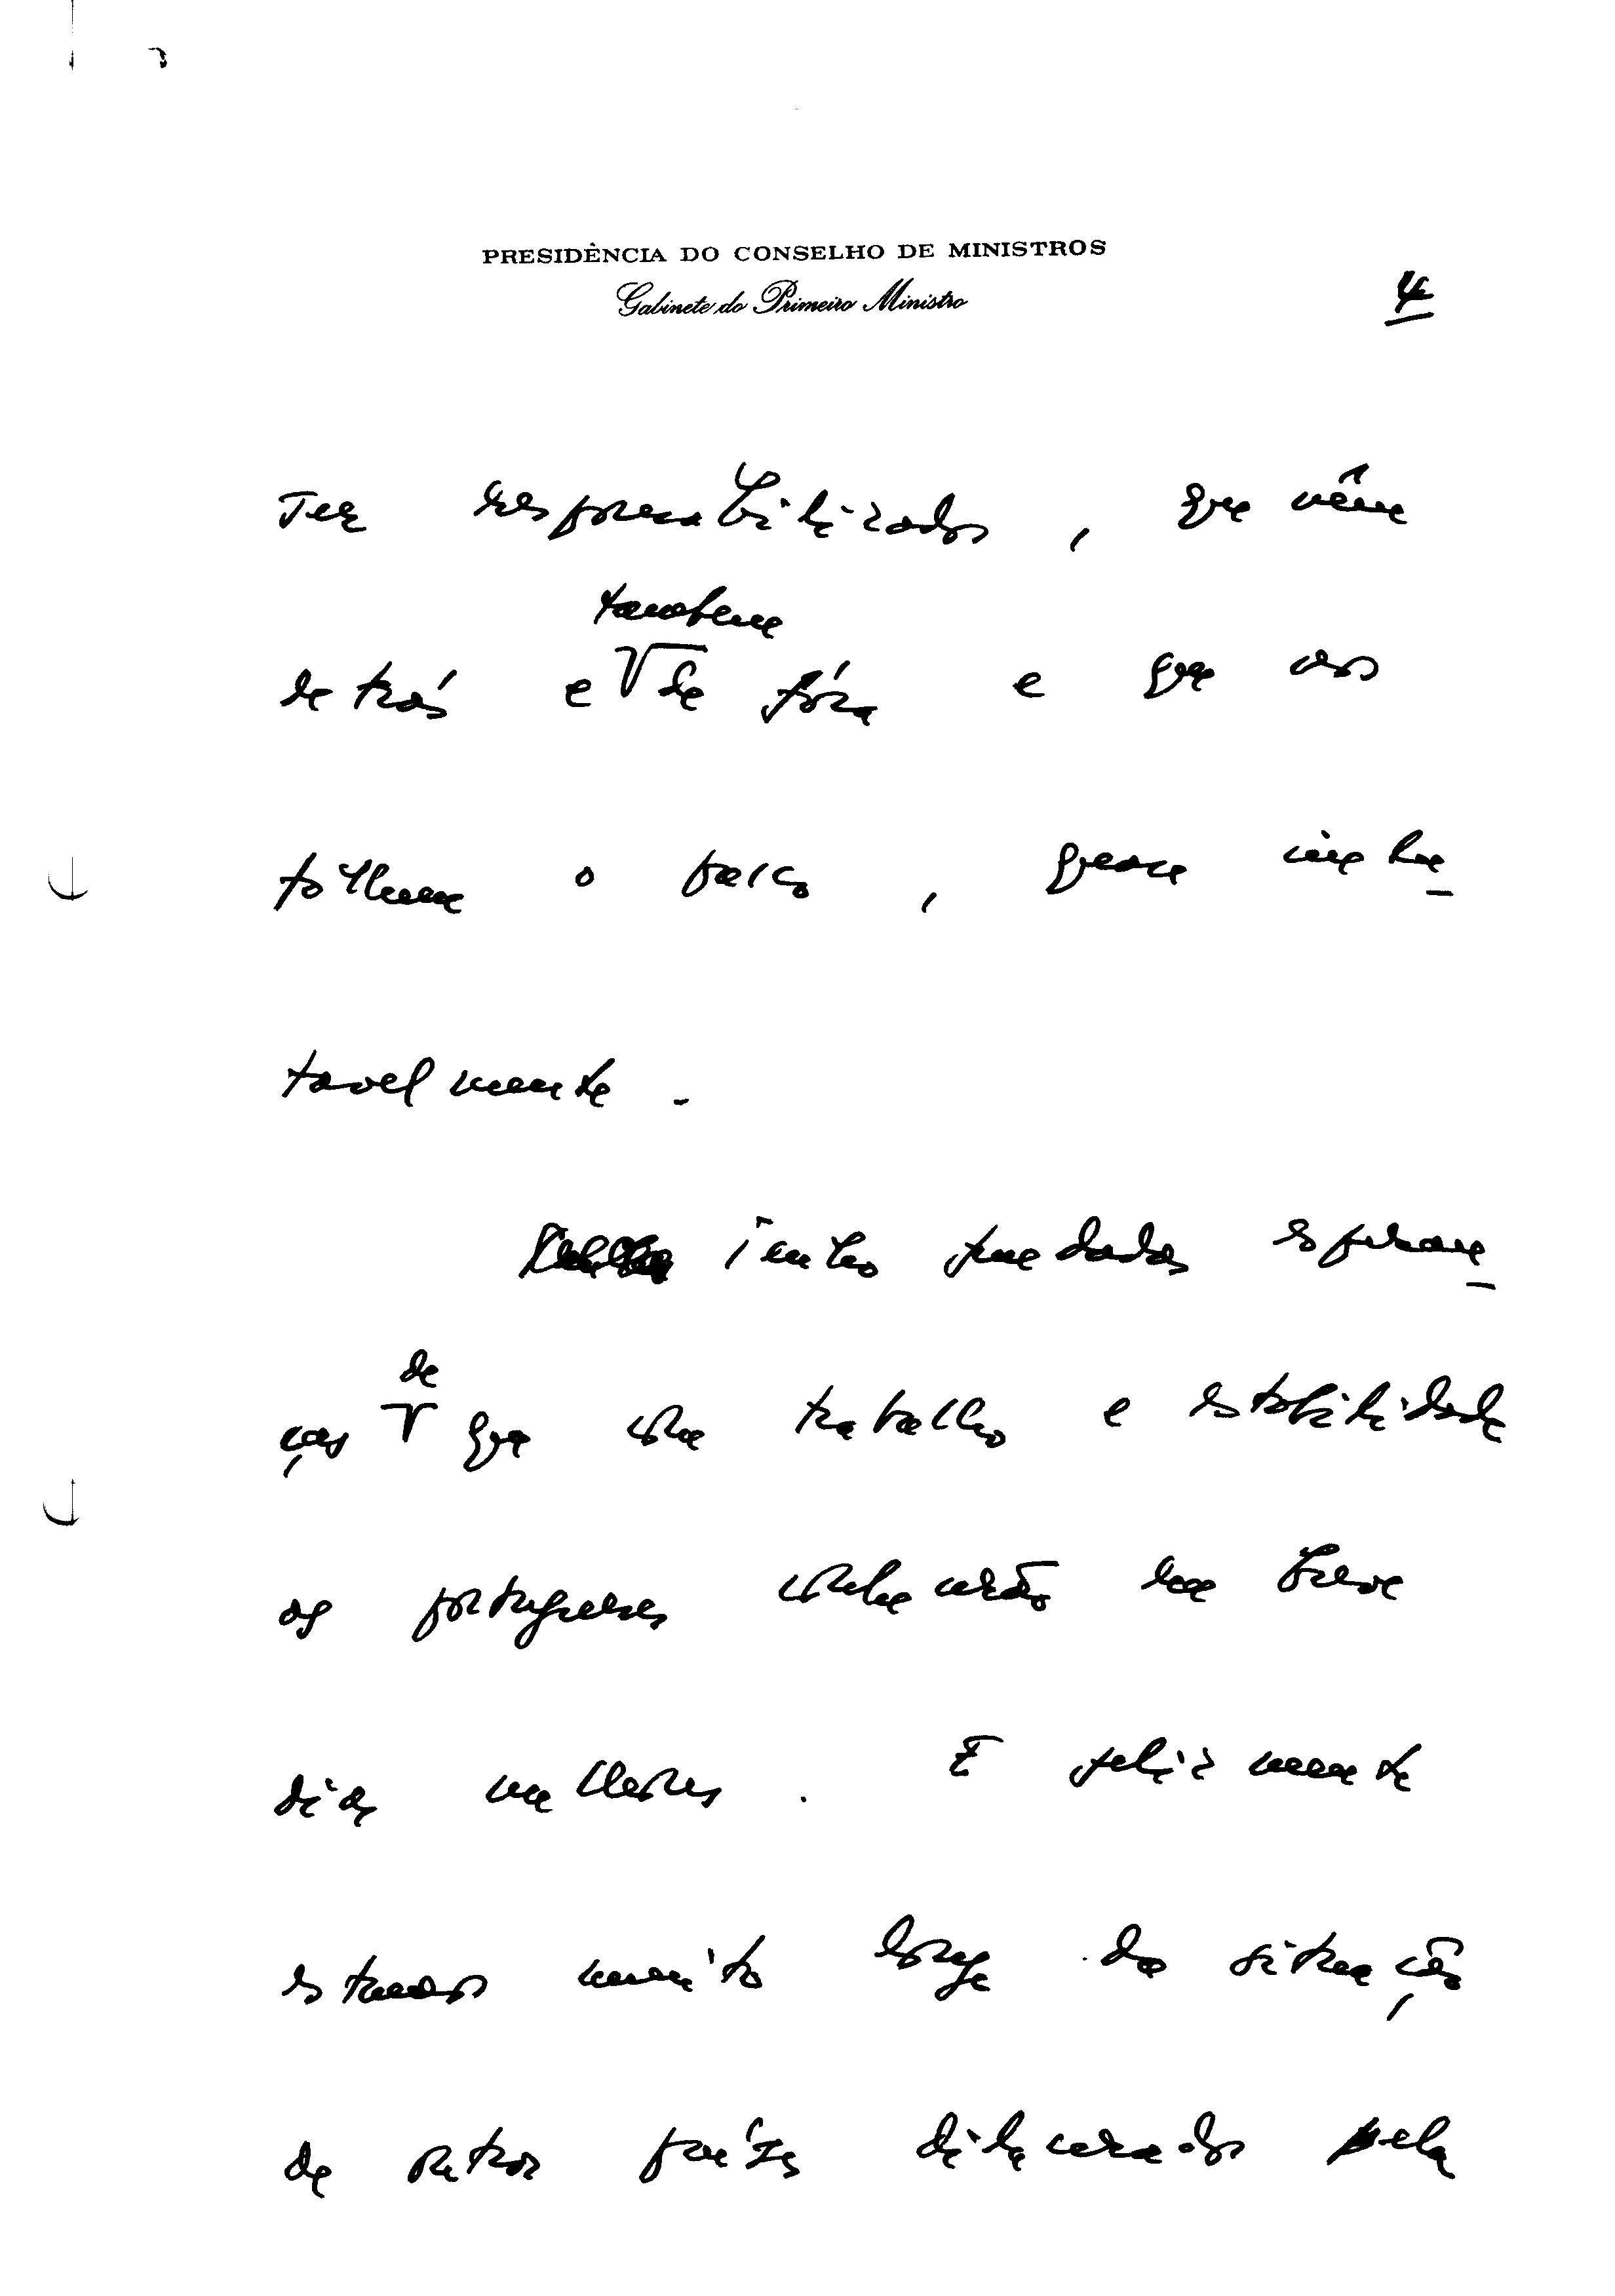 PRESIDÊNCIA DO CONSELHO DE MINISTROS
Gabinete do Primeiro Ministro
4
ser responsabilizados, que vêm
também
de trás e de fóra e que nos
tolhem o passo, quase inelu-
tavelmente.
Tenho fundadas esperan-
de
ças que com trabalho e estabilidade
os portugueses conhecerão em breve
dias melhores. E felizmente
estamos muito longe da situação
de outros países dilacerados pela